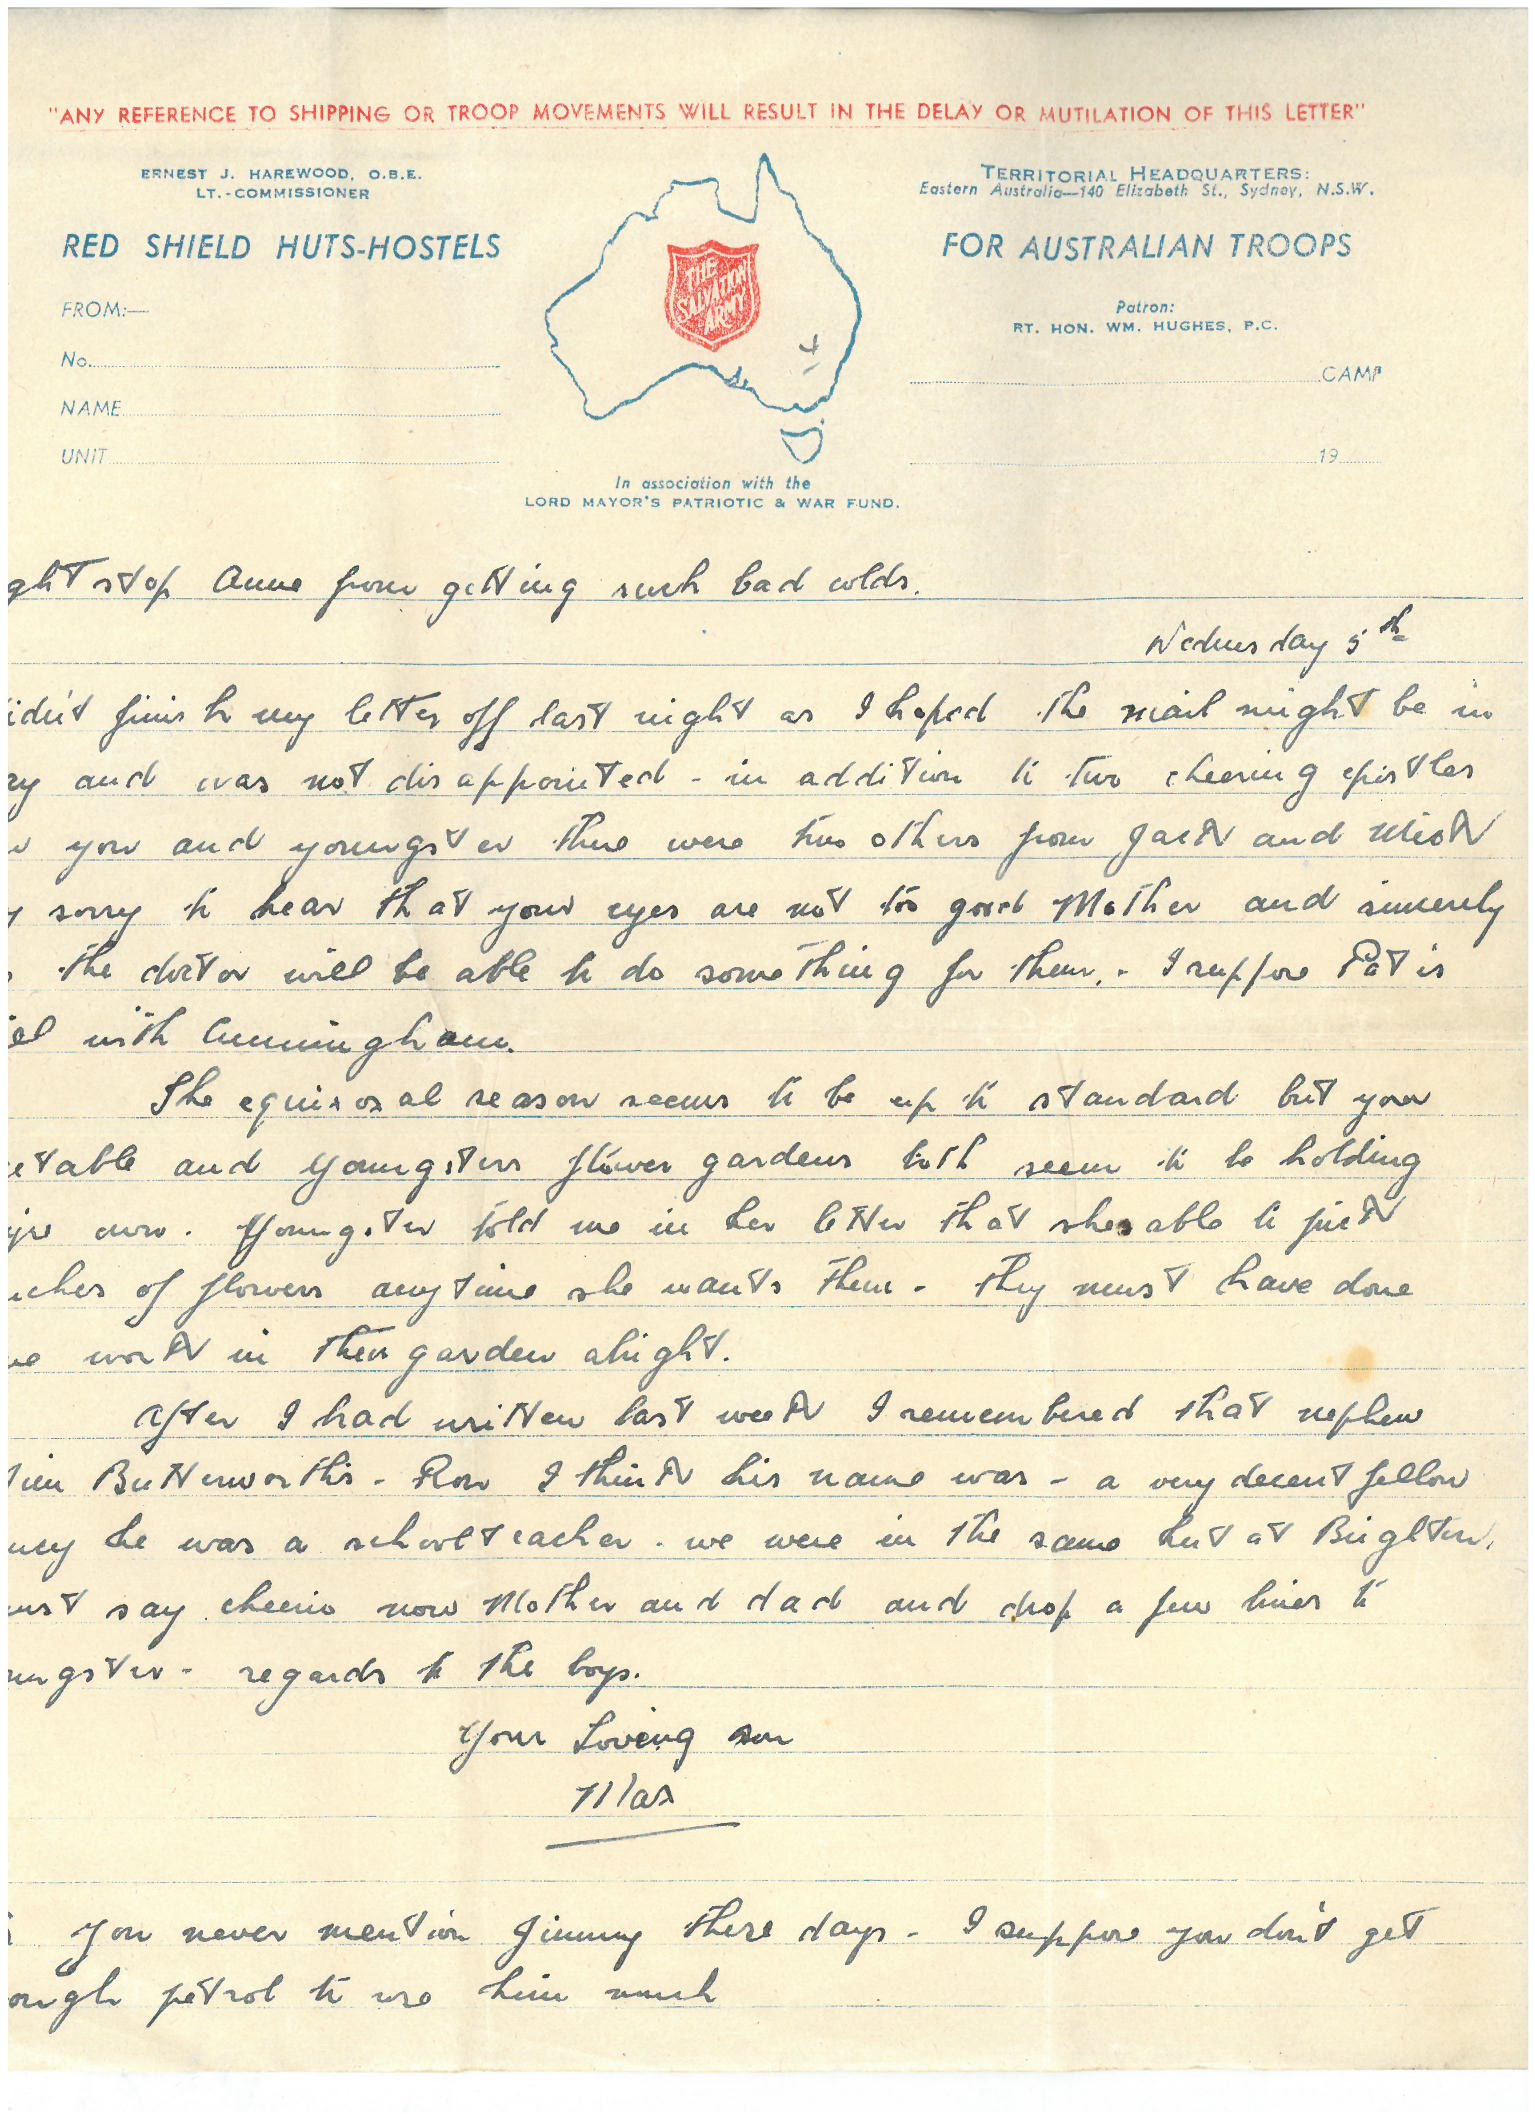 "ANY REFERENCE TO SHIPPING OR TROOP MOVEMENTS WILL RESULT IN THE DELAY OR MUTILATION OF THIS LETTER"
ERNEST J. HAREWOOD, O.B.E.
LT.-COMMISSIONER
RED SHIELD HUTS-HOSTELS
FROM:—
No.
NAME
UNIT
THE SALVATION ARMY
In association with the
LORD MAYOR'S PATRIOTIC & WAR FUND.
TERRITORIAL HEADQUARTERS:
Eastern Australia—140 Elizabeth St., Sydney, N.S.W.
FOR AUSTRALIAN TROOPS
Patron:
RT. HON. WM. HUGHES, P.C.
CAMP
19
ght stop Anne from getting such bad colds.
Wednesday 5th
idn't finish my letter off last night as I hoped the mail might be in
ry and was not disappointed - in addition to two cheering epistles
you and youngster there were two others from Jack and Mick
sorry to hear that your eyes are not too good Mother and sincerely
the doctor will be able to do something for them. - I suppose Pat is
el with Cunningham.
The equinoxal season seems to be up to standard but your
etable and youngsters flower gardens both seem to be holding
own. Youngster told me in her letter that shes able to pick
ches of flowers anytime she wants them - they must have done
work in their garden alright.
After I had written last week I remembered that nephew
Butterworths - Ron I think his name was - a very decent fellow
ncy he was a schoolteacher - we were in the same hut at Brighton.
ust say cheerio now Mother and dad and drop a few lines to
ungster - regards to the boys.
Your Loving son
Max
you never mention Jimmy these days - I suppose you don't get
ough petrol to use him much